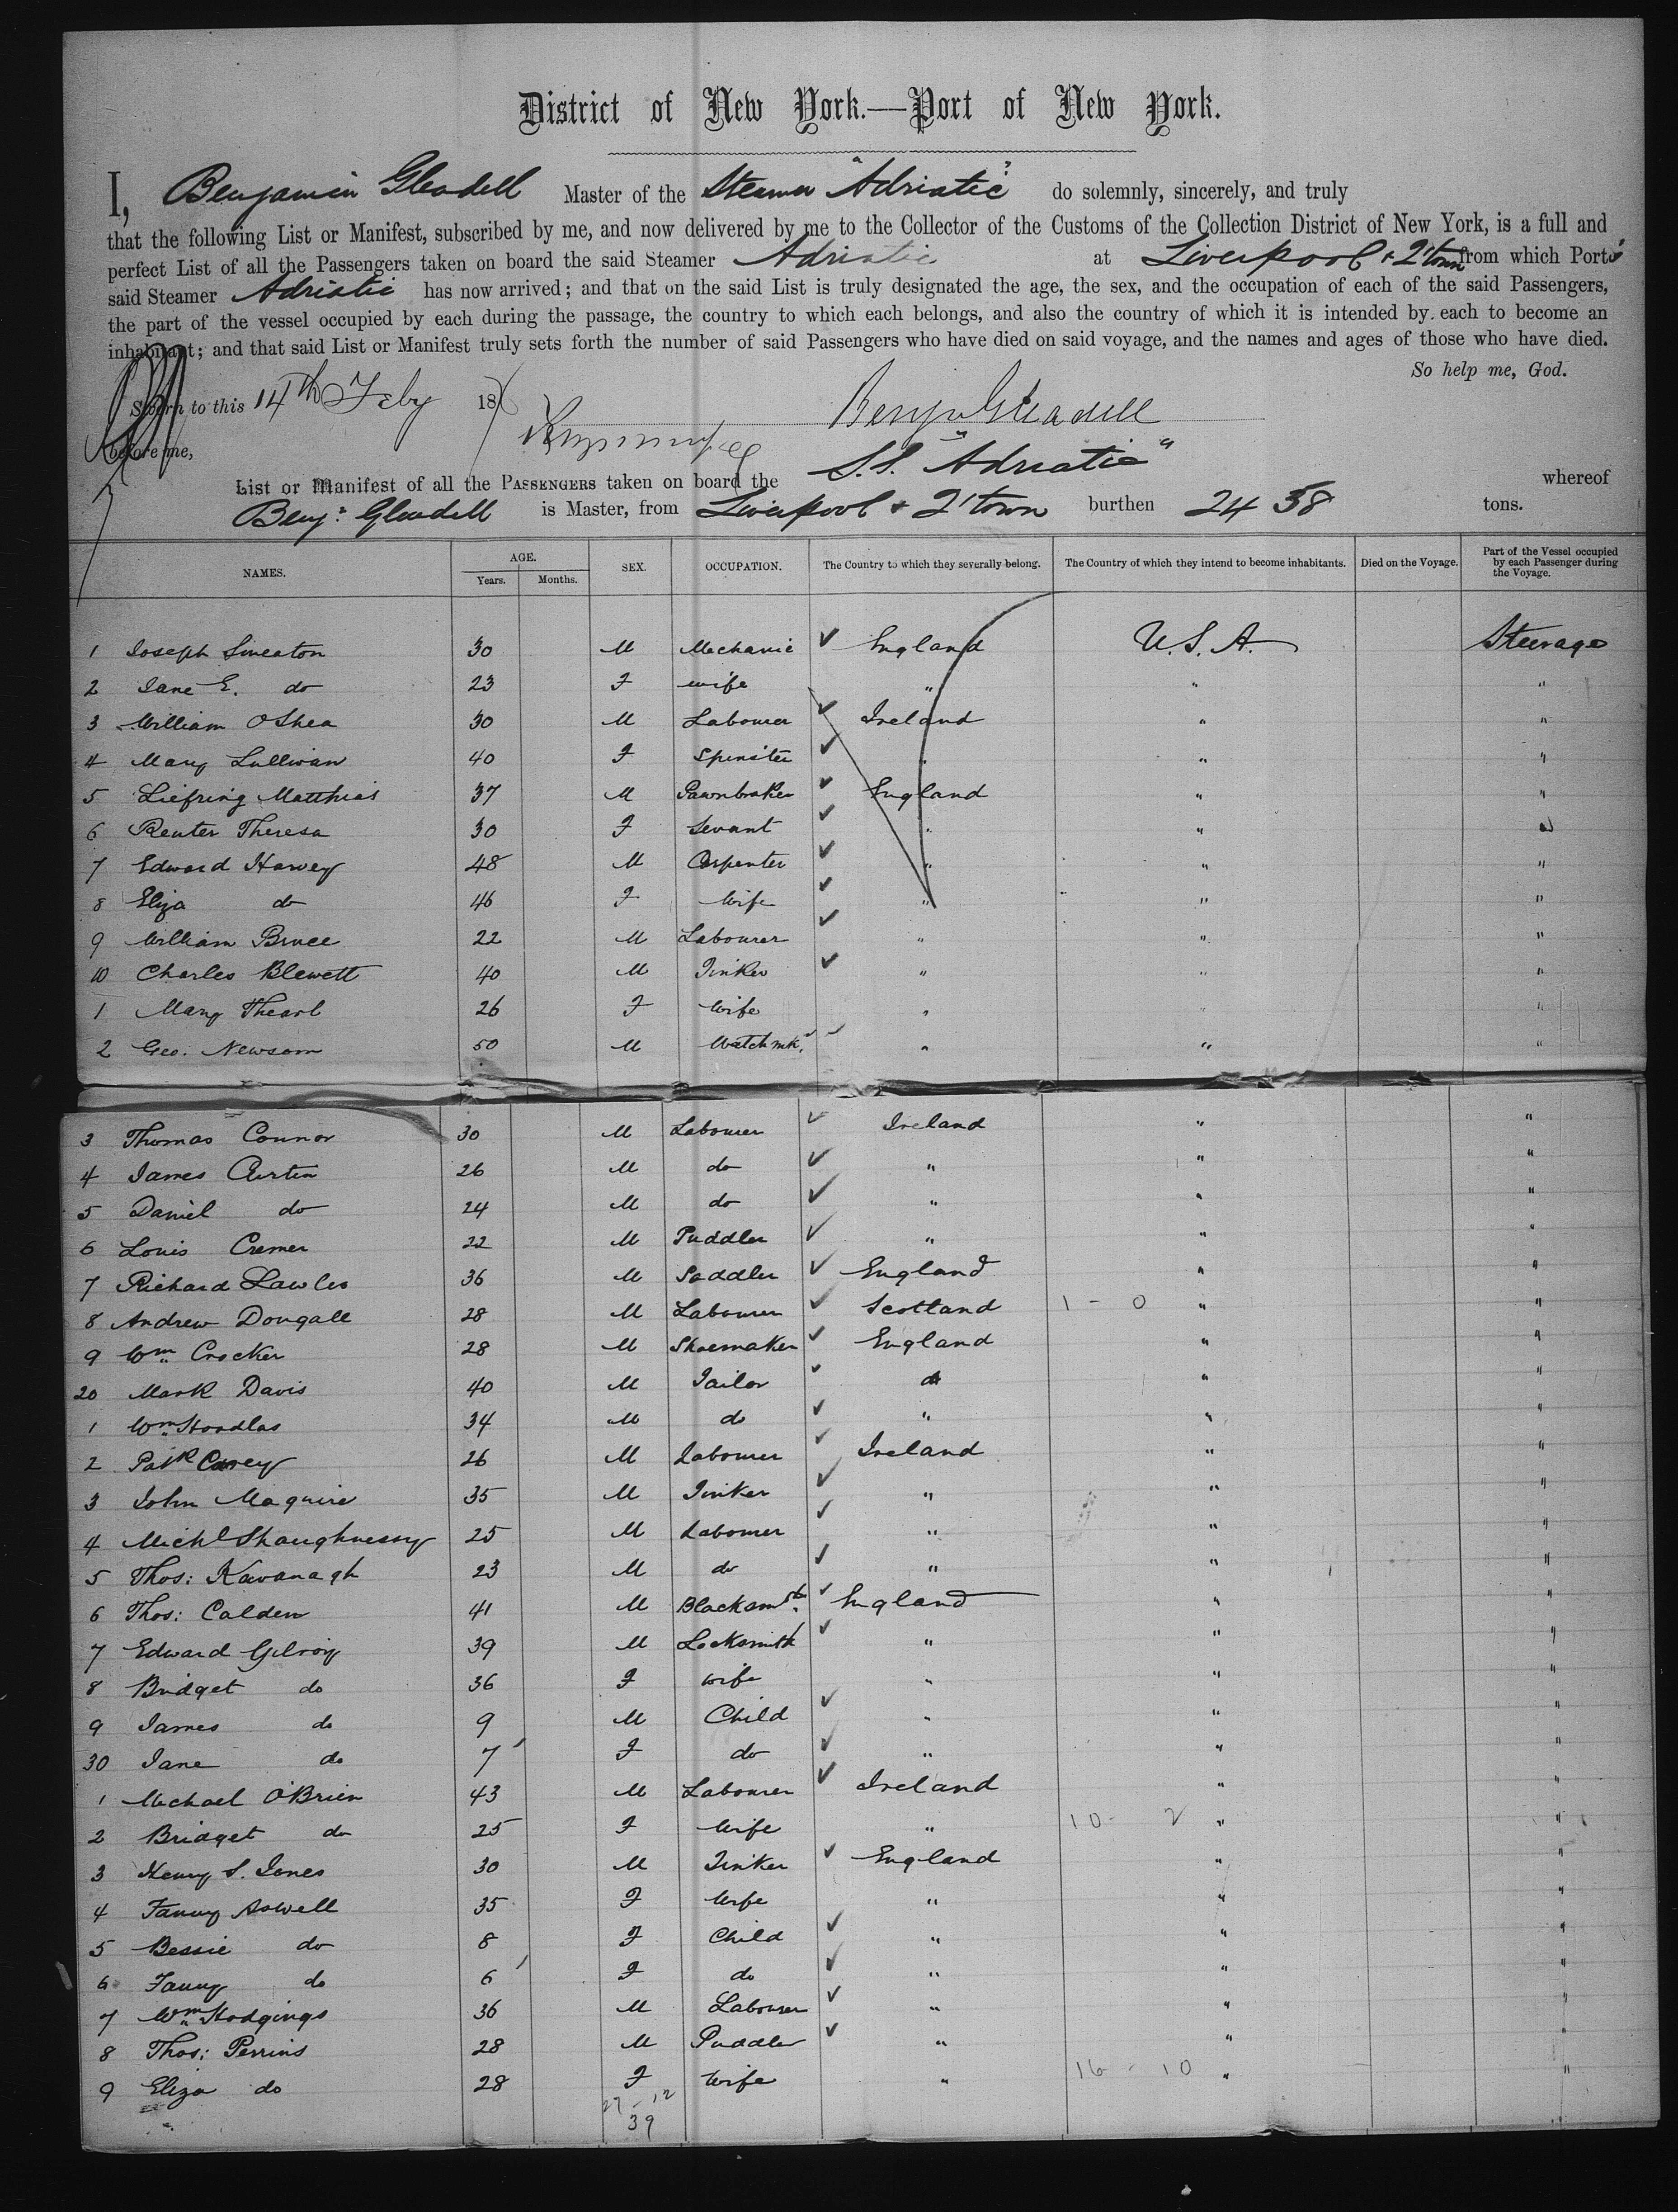 District of New York.—Port of New York.
I, Benjamin Gleadell Master of the Steamer "Adriatic" do solemnly, sincerely, and truly
that the following List or Manifest, subscribed by me, and now delivered by me to the Collector of the Customs of the Collection District of New York, is a full and
perfect List of all the Passengers taken on board the said Steamer Adriatic at Liverpool & Q'town from which Ports
said Steamer Adriatic has now arrived; and that on the said List is truly designated the age, the sex, and the occupation of each of the said Passengers,
the part of the vessel occupied by each during the passage, the country to which each belongs, and also the country of which it is intended by each to become an
inhabitant; and that said List or Manifest truly sets forth the number of said Passengers who have died on said voyage, and the names and ages of those who have died.
So help me, God.
Sworn to this 14th Feby 187
Benjn Gleadell
before me,
List or Manifest of all the PASSENGERS taken on board the S.S. "Adriatic" whereof
Benj: Gleadell is Master, from Liverpool & Q'town burthen 2458 tons.
NAMES. AGE. Years. Months. SEX. OCCUPATION. The Country to which they severally belong. The Country of which they intend to become inhabitants. Died on the Voyage. Part of the Vessel occupied by each Passenger during the Voyage.
1 Joseph Smeaton 30 M Mechanic England U.S.A. Steerage
2 Jane E. do 23 F wife " " "
3 William OShea 30 M Labourer Ireland " "
4 Mary Sullivan 40 F Spinster " " "
5 Liefring Matthias 37 M Pawnbroker England " "
6 Reuter Theresa 30 F Sevant " " "
7 Edward Harvey 48 M Carpenter " " "
8 Eliza do 46 F Wife " " "
9 William Bruce 22 M Labourer " " "
10 Charles Blewett 40 M Tinker " " "
1 Mary Thearl 26 F Wife " " "
2 Geo. Newsom 50 M Watchmkr " " "
3 Thomas Connor 30 M Labourer Ireland " "
4 James Curtin 26 M do " " "
5 Daniel do 24 M do " " "
6 Louis Cremer 22 M Puddler " " "
7 Richard Lawles 36 M Saddler England " "
8 Andrew Dougall 28 M Labourer Scotland 1 - 0 " "
9 Wm Crocker 28 M Shoemaker England " "
20 Mark Davis 40 M Tailor do " "
1 Wm Hoodlas 34 M do " " "
2 Patk Carey 26 M Labourer Ireland " "
3 John Maguire 35 M Tinker " " "
4 Michl Shaughnessy 25 M Labourer " " "
5 Thos: Kavanagh 23 M do " " "
6 Thos: Calden 41 M Blacksmth England " "
7 Edward Gilroy 39 M Locksmith " " "
8 Bridget do 36 F wife " " "
9 James do 9 M Child " " "
30 Jane do 7 F do " " "
1 Michael O'Brien 43 M Labourer Ireland " "
2 Bridget do 25 F Wife " 10 - 2 " "
3 Henry S. Jones 30 M Tinker England " "
4 Fanny Aswell 35 F Wife " " "
5 Bessie do 8 F Child " " "
6 Fanny do 6 F do " " "
7 Wm Hodgings 36 M Labourer " " "
8 Thos: Perrins 28 M Puddler " " "
9 Eliza do 28 F Wife " 16 - 10 " "
27 - 12
39